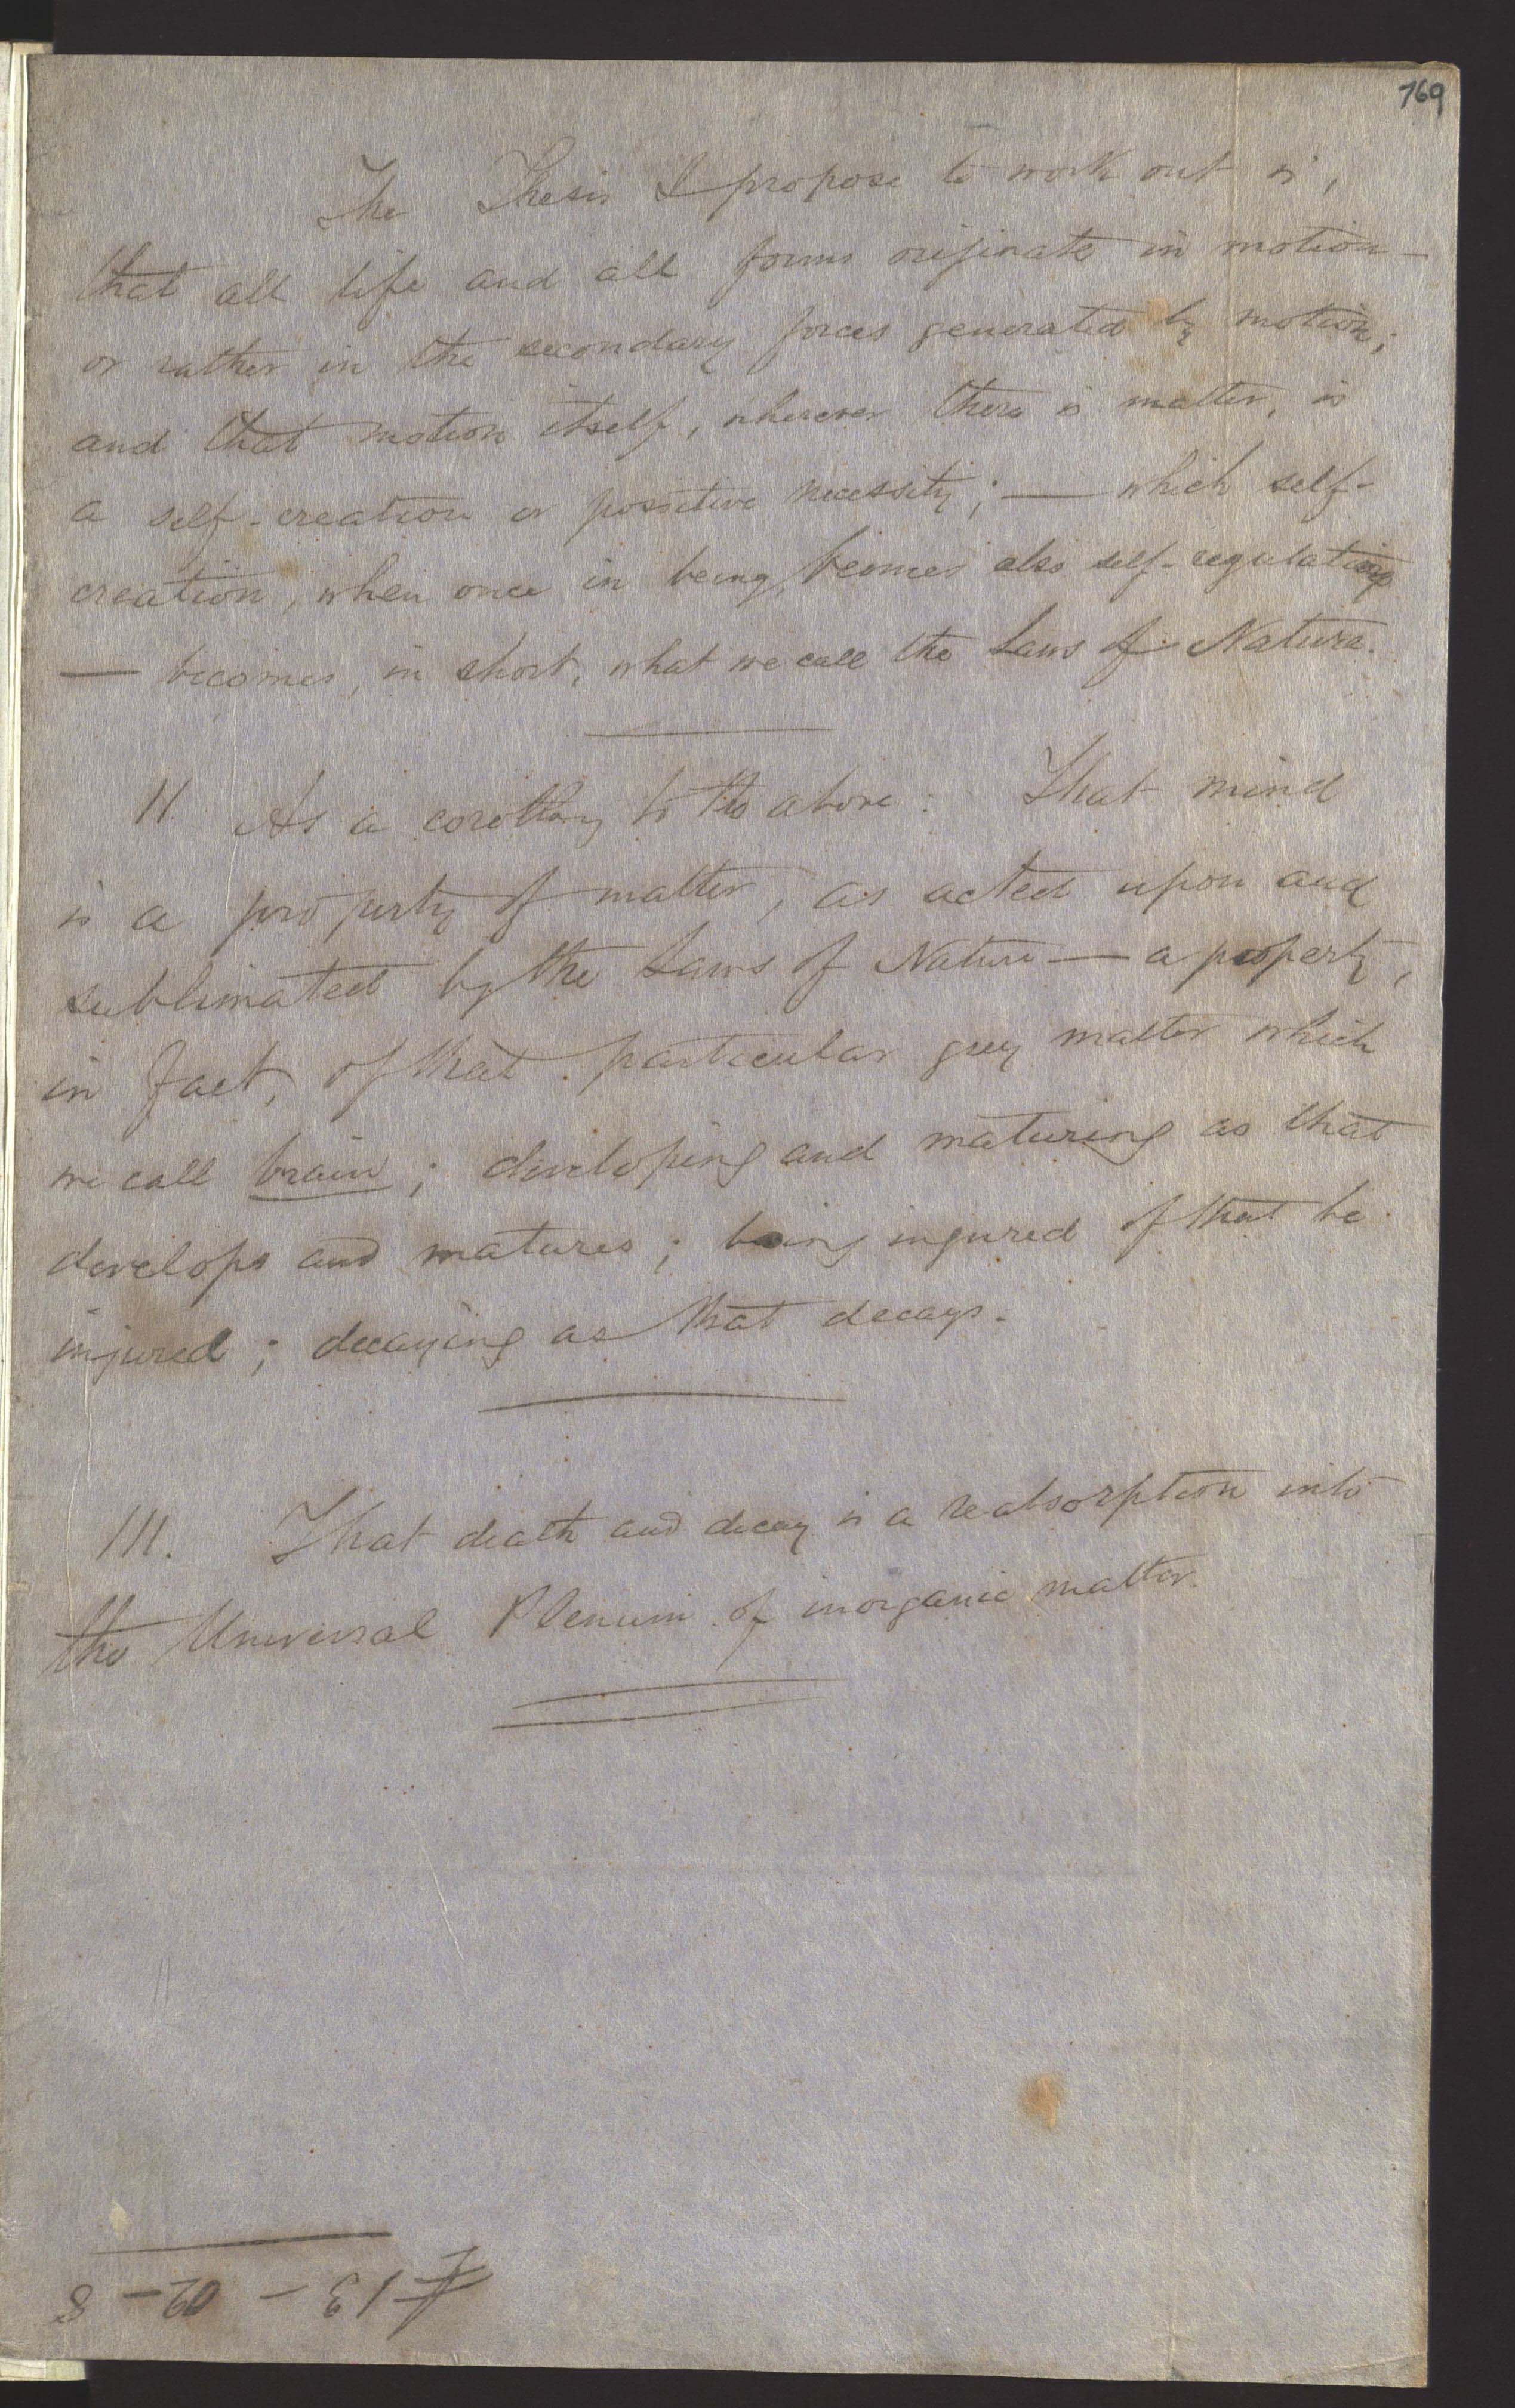 769
The Thesis I propose to work out is,
that all life and all forms originate in motion —
or rather in the secondary forces generated by motion;
and that motion itself, wherever there is matter, is
a self-creation or positive necessity; — which self-
creation, when once in being, becomes also self-regulating
— becomes, in short, what we call the Laws of Nature.
II. As a corollary to the above: That mind
is a property of matter, as acted upon and
sublimated by the Laws of Nature — a property,
in fact, of that particular grey matter which
we call brain; developing and maturing as that
develops and matures; being injured if that be
injured; decaying as that decays.
III. That death and decay is a reabsorption into
the Universal Plenum of inorganic matter.